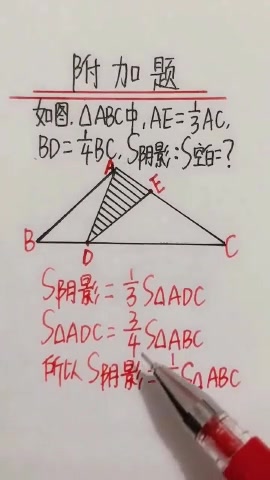 附加题
如图,△ABC中,AE=1/3AC,
BD=1/4BC,S阴影:S空白=?
A
E
B
D
C
S阴影=1/3S△ADC
S△ADC=3/4S△ABC
所以S阴影=S△ABC